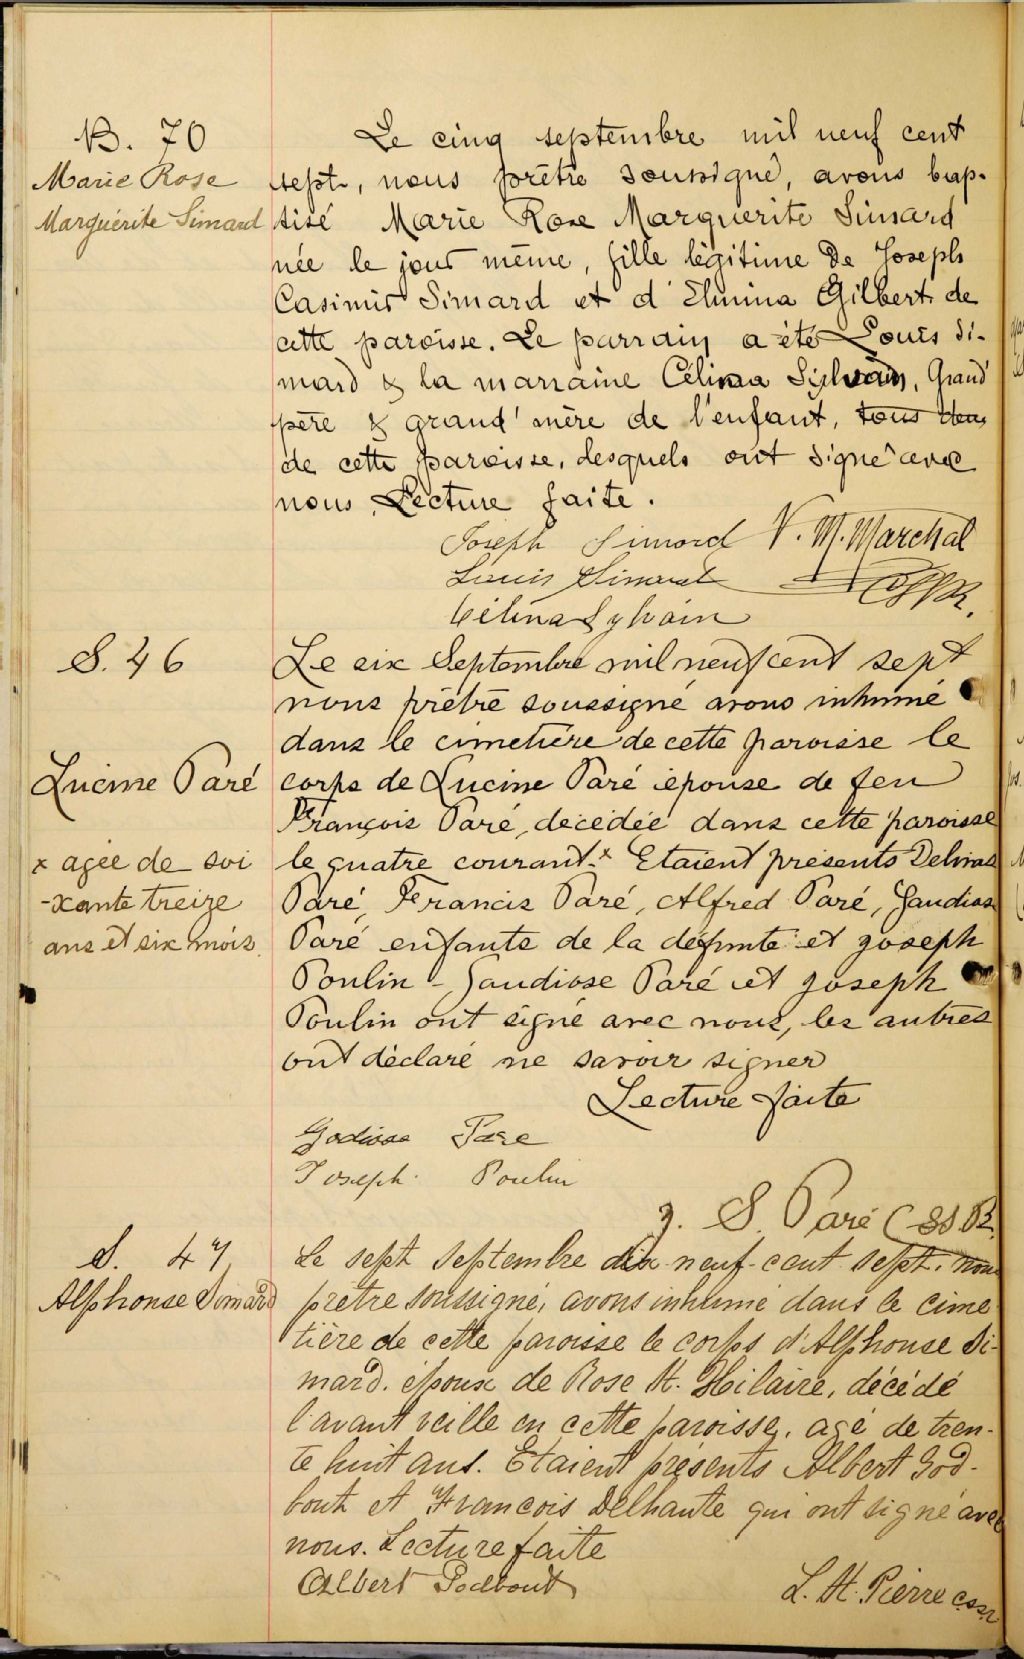 B. 70
Marie Rose
Marguérite Simard
Le cinq septembre mil neuf cent
sept, nous prêtre soussigné, avons bap-
tisé Marie Rose Marguerite Simard
née le jour même, fille légitime de Joseph
Casimir Simard et d'Elmina Gilbert de
cette paroisse. Le parrain a été Louis Si-
mard & la marraine Célina Sylvain, Grand'
père & grand'mère de l'enfant, tous deux
de cette paroisse, lesquels ont signé avec
nous. Lecture faite.
Joseph Simard V. M. Marchal
Louis Simard CSSR.
Célina Sylvain
S. 46
Lucine Paré
x agée de soi
-xante treize
ans et six mois
Le six Septembre mil neuf cent sept
nous prêtre soussigné avons inhumé
dans le cimetière de cette paroisse le
corps de Lucine Paré épouse de feu
François Paré, décédée dans cette paroisse
le quatre courant. x Etaient présents Delvinas
Paré, Francis Paré, Alfred Paré, Gaudiose
Paré enfants de la défunte et Joseph
Poulin - Gaudiose Paré et Joseph
Poulin ont signé avec nous, les autres
ont déclaré ne savoir signer
Lecture faite
Godiose Pare
Joseph Poulin
J. S. Paré CSSR.
S. 47
Alphonse Simard
Le sept Septembre dix neuf-cent sept, nous
prêtre soussigné, avons inhumé dans le cime
tière de cette paroisse le corps d'Alphonse Si-
mard. époux de Rose St. Hilaire, décédé
l'avant veille en cette paroisse, agé de tren-
te huit ans. Etaient présents Albert God-
bout et François Delhaute qui ont signé avec
nous. Lecture faite
Albert Godbout
L. St. Pierre c.ss.r